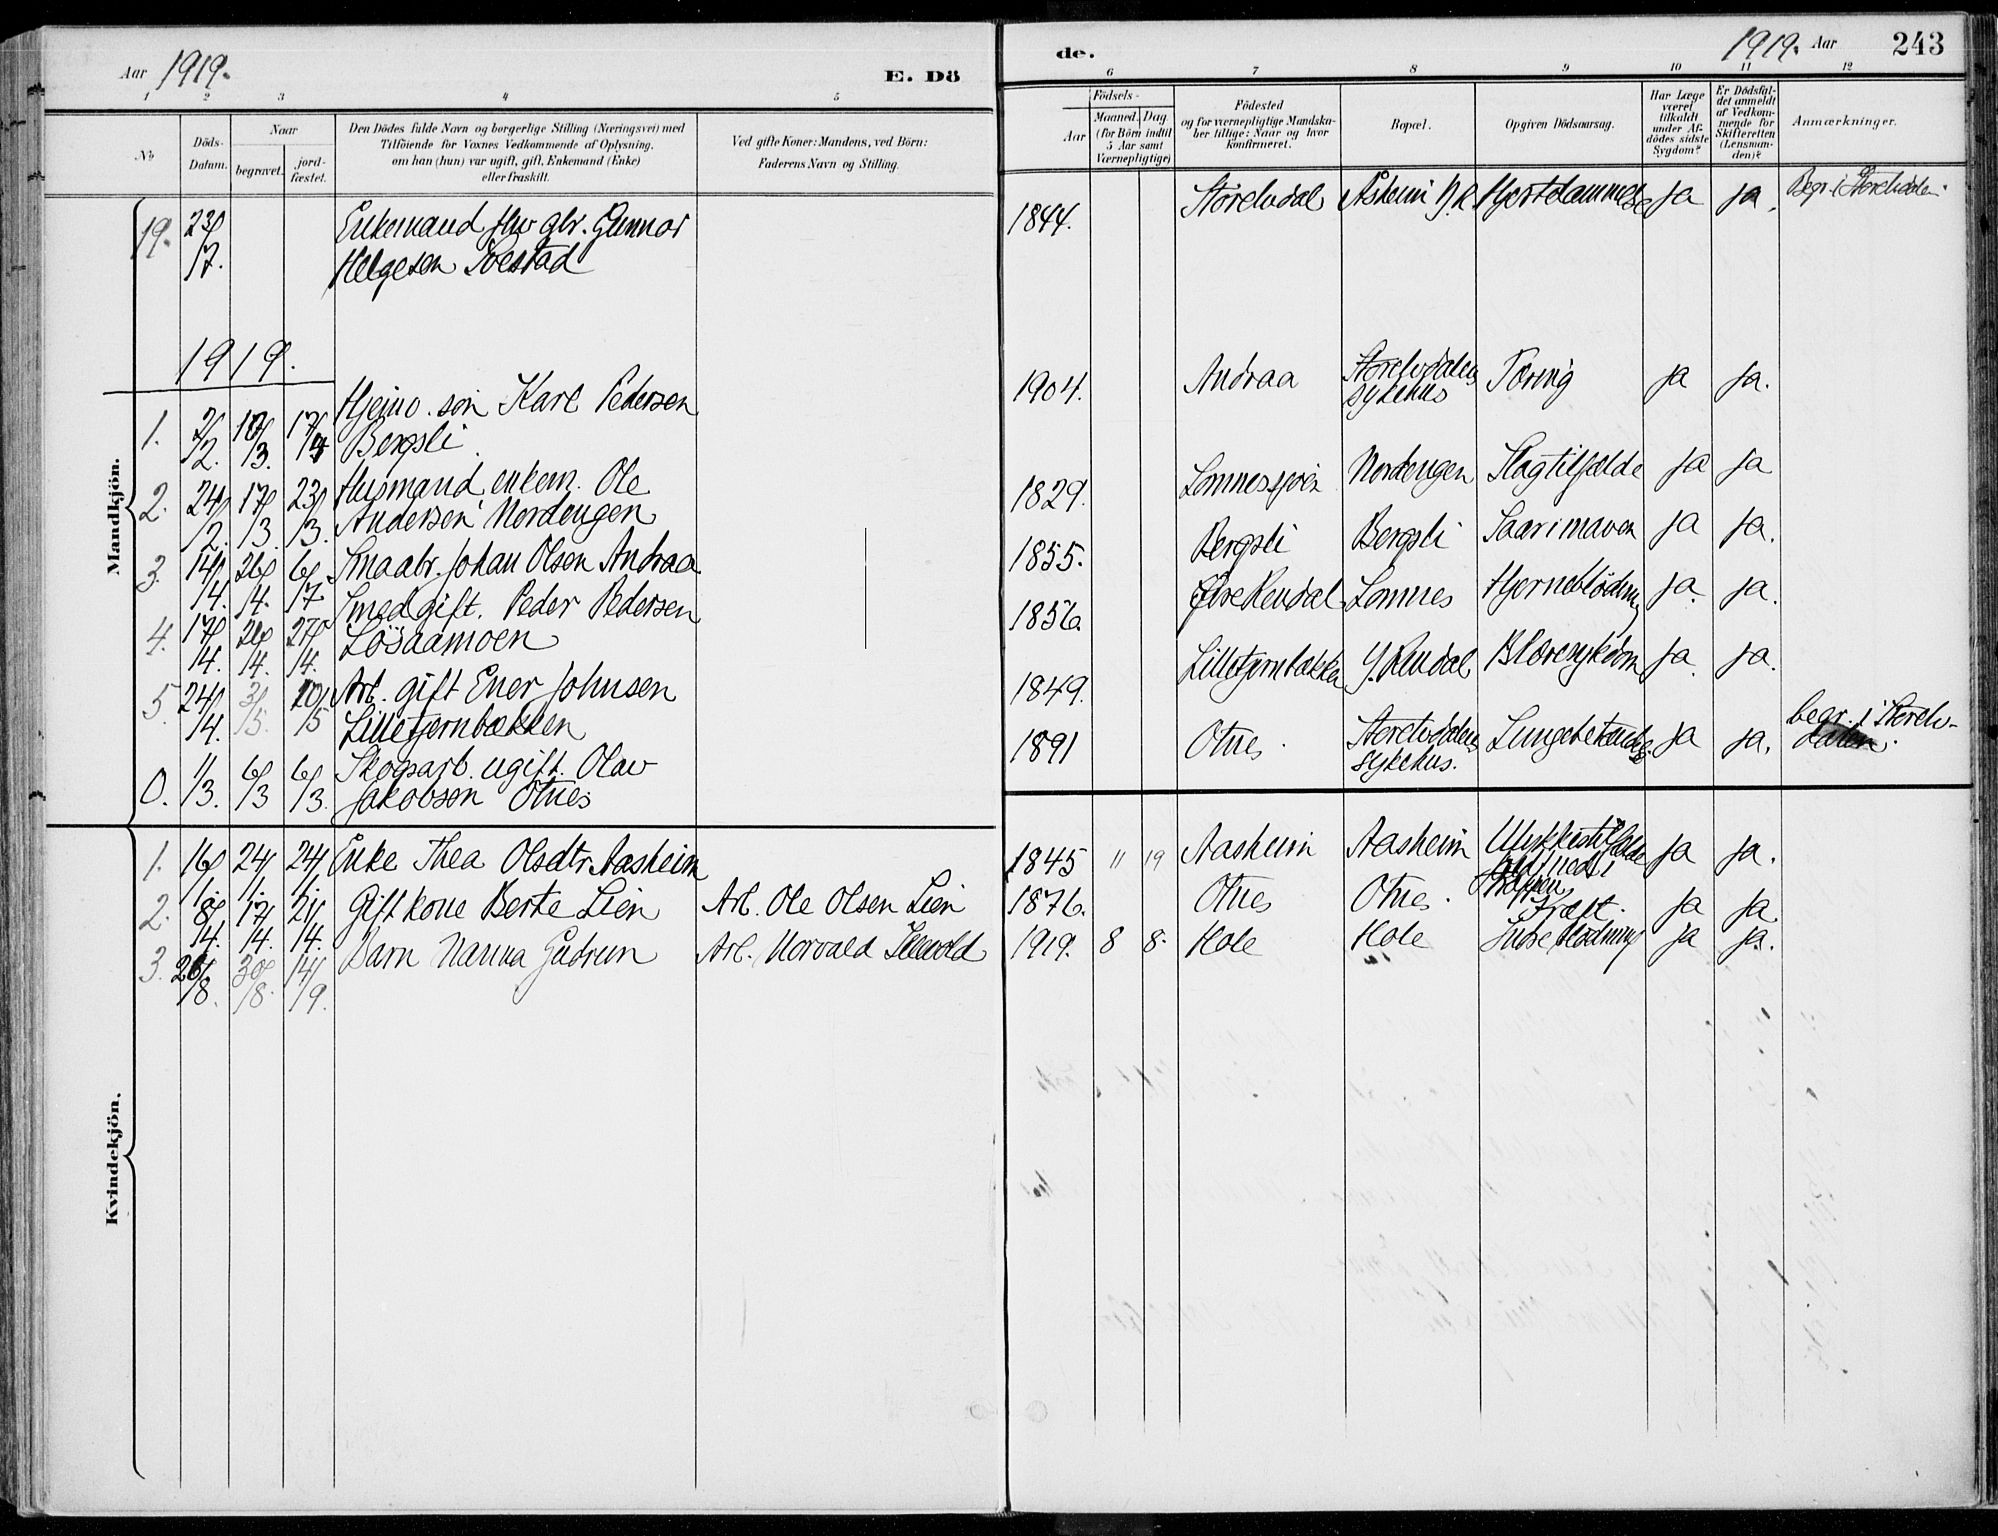 Aar 1919.
E. Dö
de.
1919. Aar
243
1 2 3 4 5
6 7 8 9 10 11 12
No
Döds-
Datum.
Naar
begravet.
jord-
fæstet.
Den Dödes fulde Navn og borgerlige Stilling (Næringsvei) med
Tilföiende for Voxnes Vedkommende af Oplysning,
om han (hun) var ugift, gift, Enkemand (Enke)
eller fraskilt.
Ved gifte Koner: Mandens, ved Börn:
Faderens Navn og Stilling.
Födsels-
Aar
Maaned. Dag
(for Börn indtil
5 Aar samt
Værnepligtige)
Födested
og for værnepligtige Mandska-
ber tillige: Naar og hvor
Konfirmeret.
Bopæl.
Opgiven Dödsaarsag.
Har Læge
været
tilkaldt
under Af-
dödes sidste
Sygdom?
Er Dödsfal-
det anmeldt
af Vedkom-
mende for
Skifteretten
(Lensman-
den)?
Anmærkninger.
Mandkjön.
19. 23/7. Enkemand fhv gbr. Gunnar
Helgesen
1844. Storelvdal Åsheim Y.R. Hjertelammelse ja ja. Begr. i Storelvdalen.
1919.
1. 2/2. 18/3. Karl Pedersen
Bergsli.
1904. Andraa Storelvdalens
sykehus Tæring ja ja.
2. 24/2. 17/3. 23/3. Husmand, enkem. Ole
Andersen Nordengen
1829. Lomnessjøen Nordengen Slagtilfælde ja ja
3. 14/4. 26/4. Smaabr. Johan Olsen Andraa
1855. Bergsli Bergsli Saar i maven ja ja.
4. 17/4. 26/4. 27/4. Smed gift. Peder Pedersen
Løsaamoen
1856. Øvre Rendal Lomnes Hjerneblødning ja. ja.
5. 24/4. 3/5. Arb. gift Ener Johnsen
Lilletjernbækken
1849. Lilletjernbækken Y. Rendal Blæresykdom ja. ja.
0. 1/3. 6/3 6/3. Skogsarb. ugift. Olav
Jakobsen Otnes
1891 Otnes. Storelvdalens
sykehus. Lungebetændelse ja ja. begr. i Storelv-
dalen.
Kvindekjön.
1. 16/1. 24/1. 24/1. Enke Thea Olsdtr. Aasheim
1845 11 19 Aasheim Aasheim Ulykkestilfælde
faldt ned i
trappen ja ja.
2. 8/4. 17/4. 21/4. Gift kone Berte Lien Arb. Ole Olsen Lien
1876. Otnes Otnes. Kræft. ja ja.
3. 26/8. 30/8. 14/9. Barn Nanna Gudrun Arb. Norvald
1919. 8 8. Hole Hole Indre blødning ja ja.